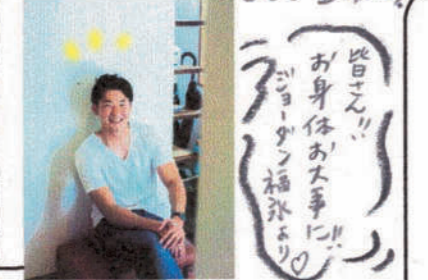 皆さん!!
お身体お大事に!!
ジョーダン福永より♡